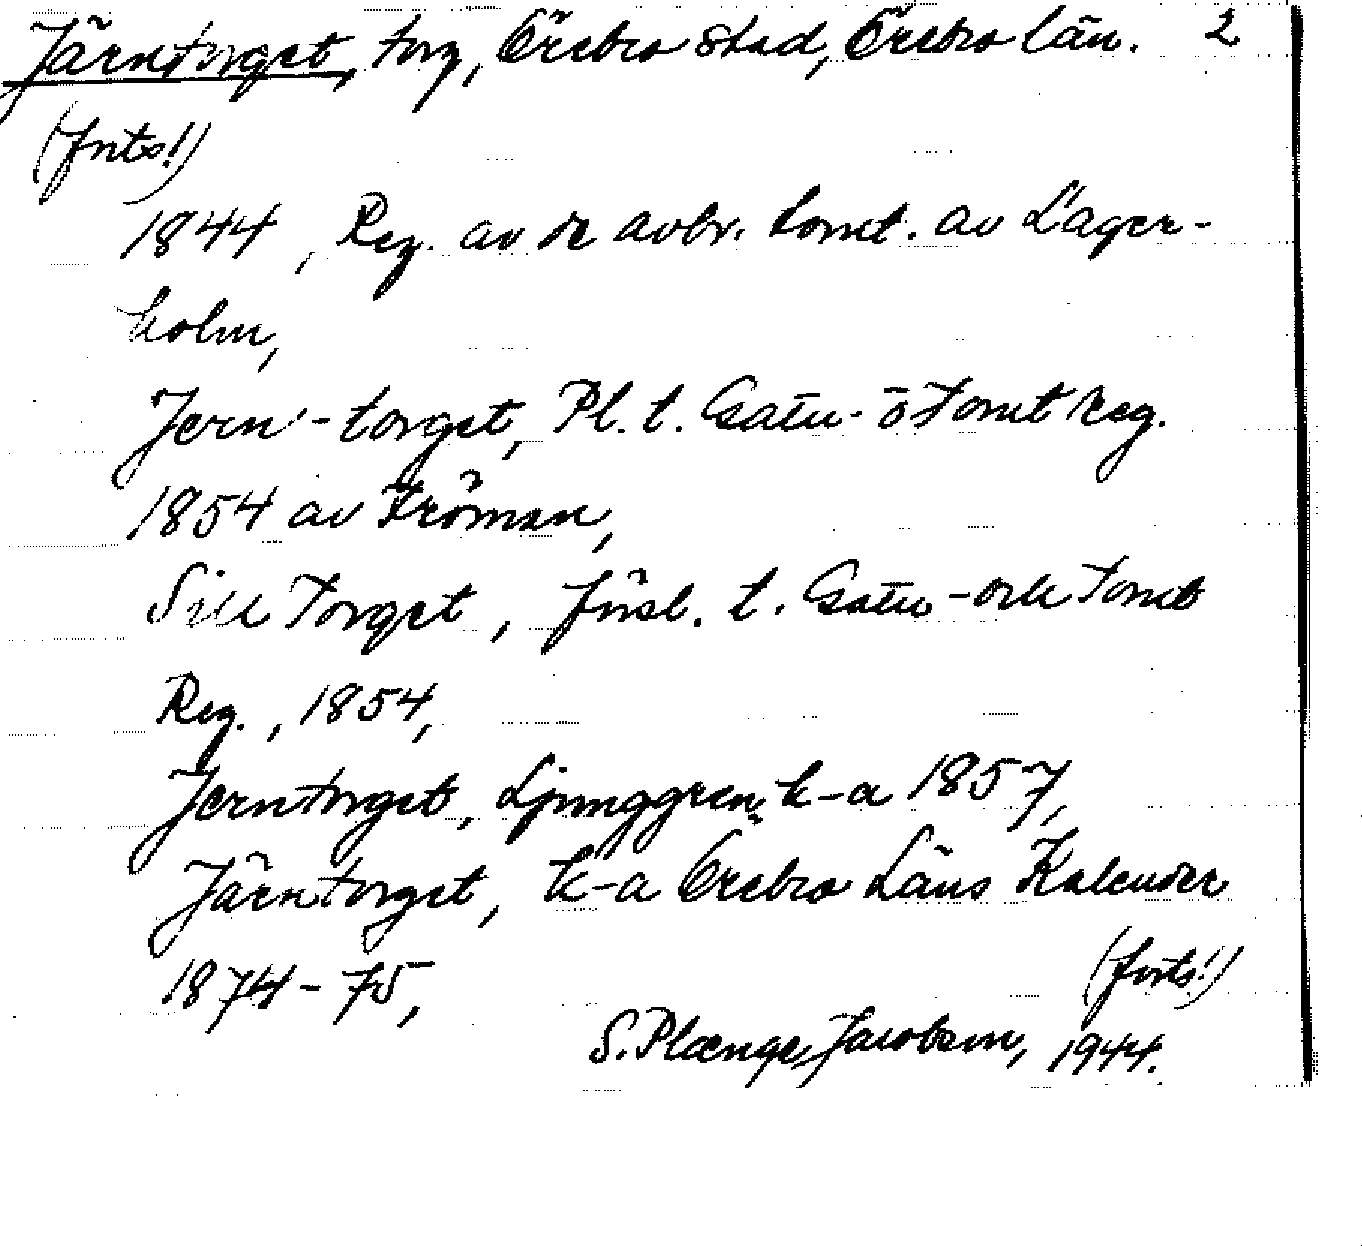 Järntorget, torg, Örebro stad, Örebro län. 2
(forts!)
1844, Reg. av de avbr. tomt. av Lager-
holm,
Jern-torget, Pl. t. Gatu- o Tomt reg.
1854 av Fröman,
Sill Torget, Försl. t. Gatu- och Tomt
Reg., 1854,
Jerntorget, Ljunggren, k-a 1857,
Järntorget, k-a Örebro Läns Kalender
1874-75, (forts!)
S. Plænge Jacobson, 1944.